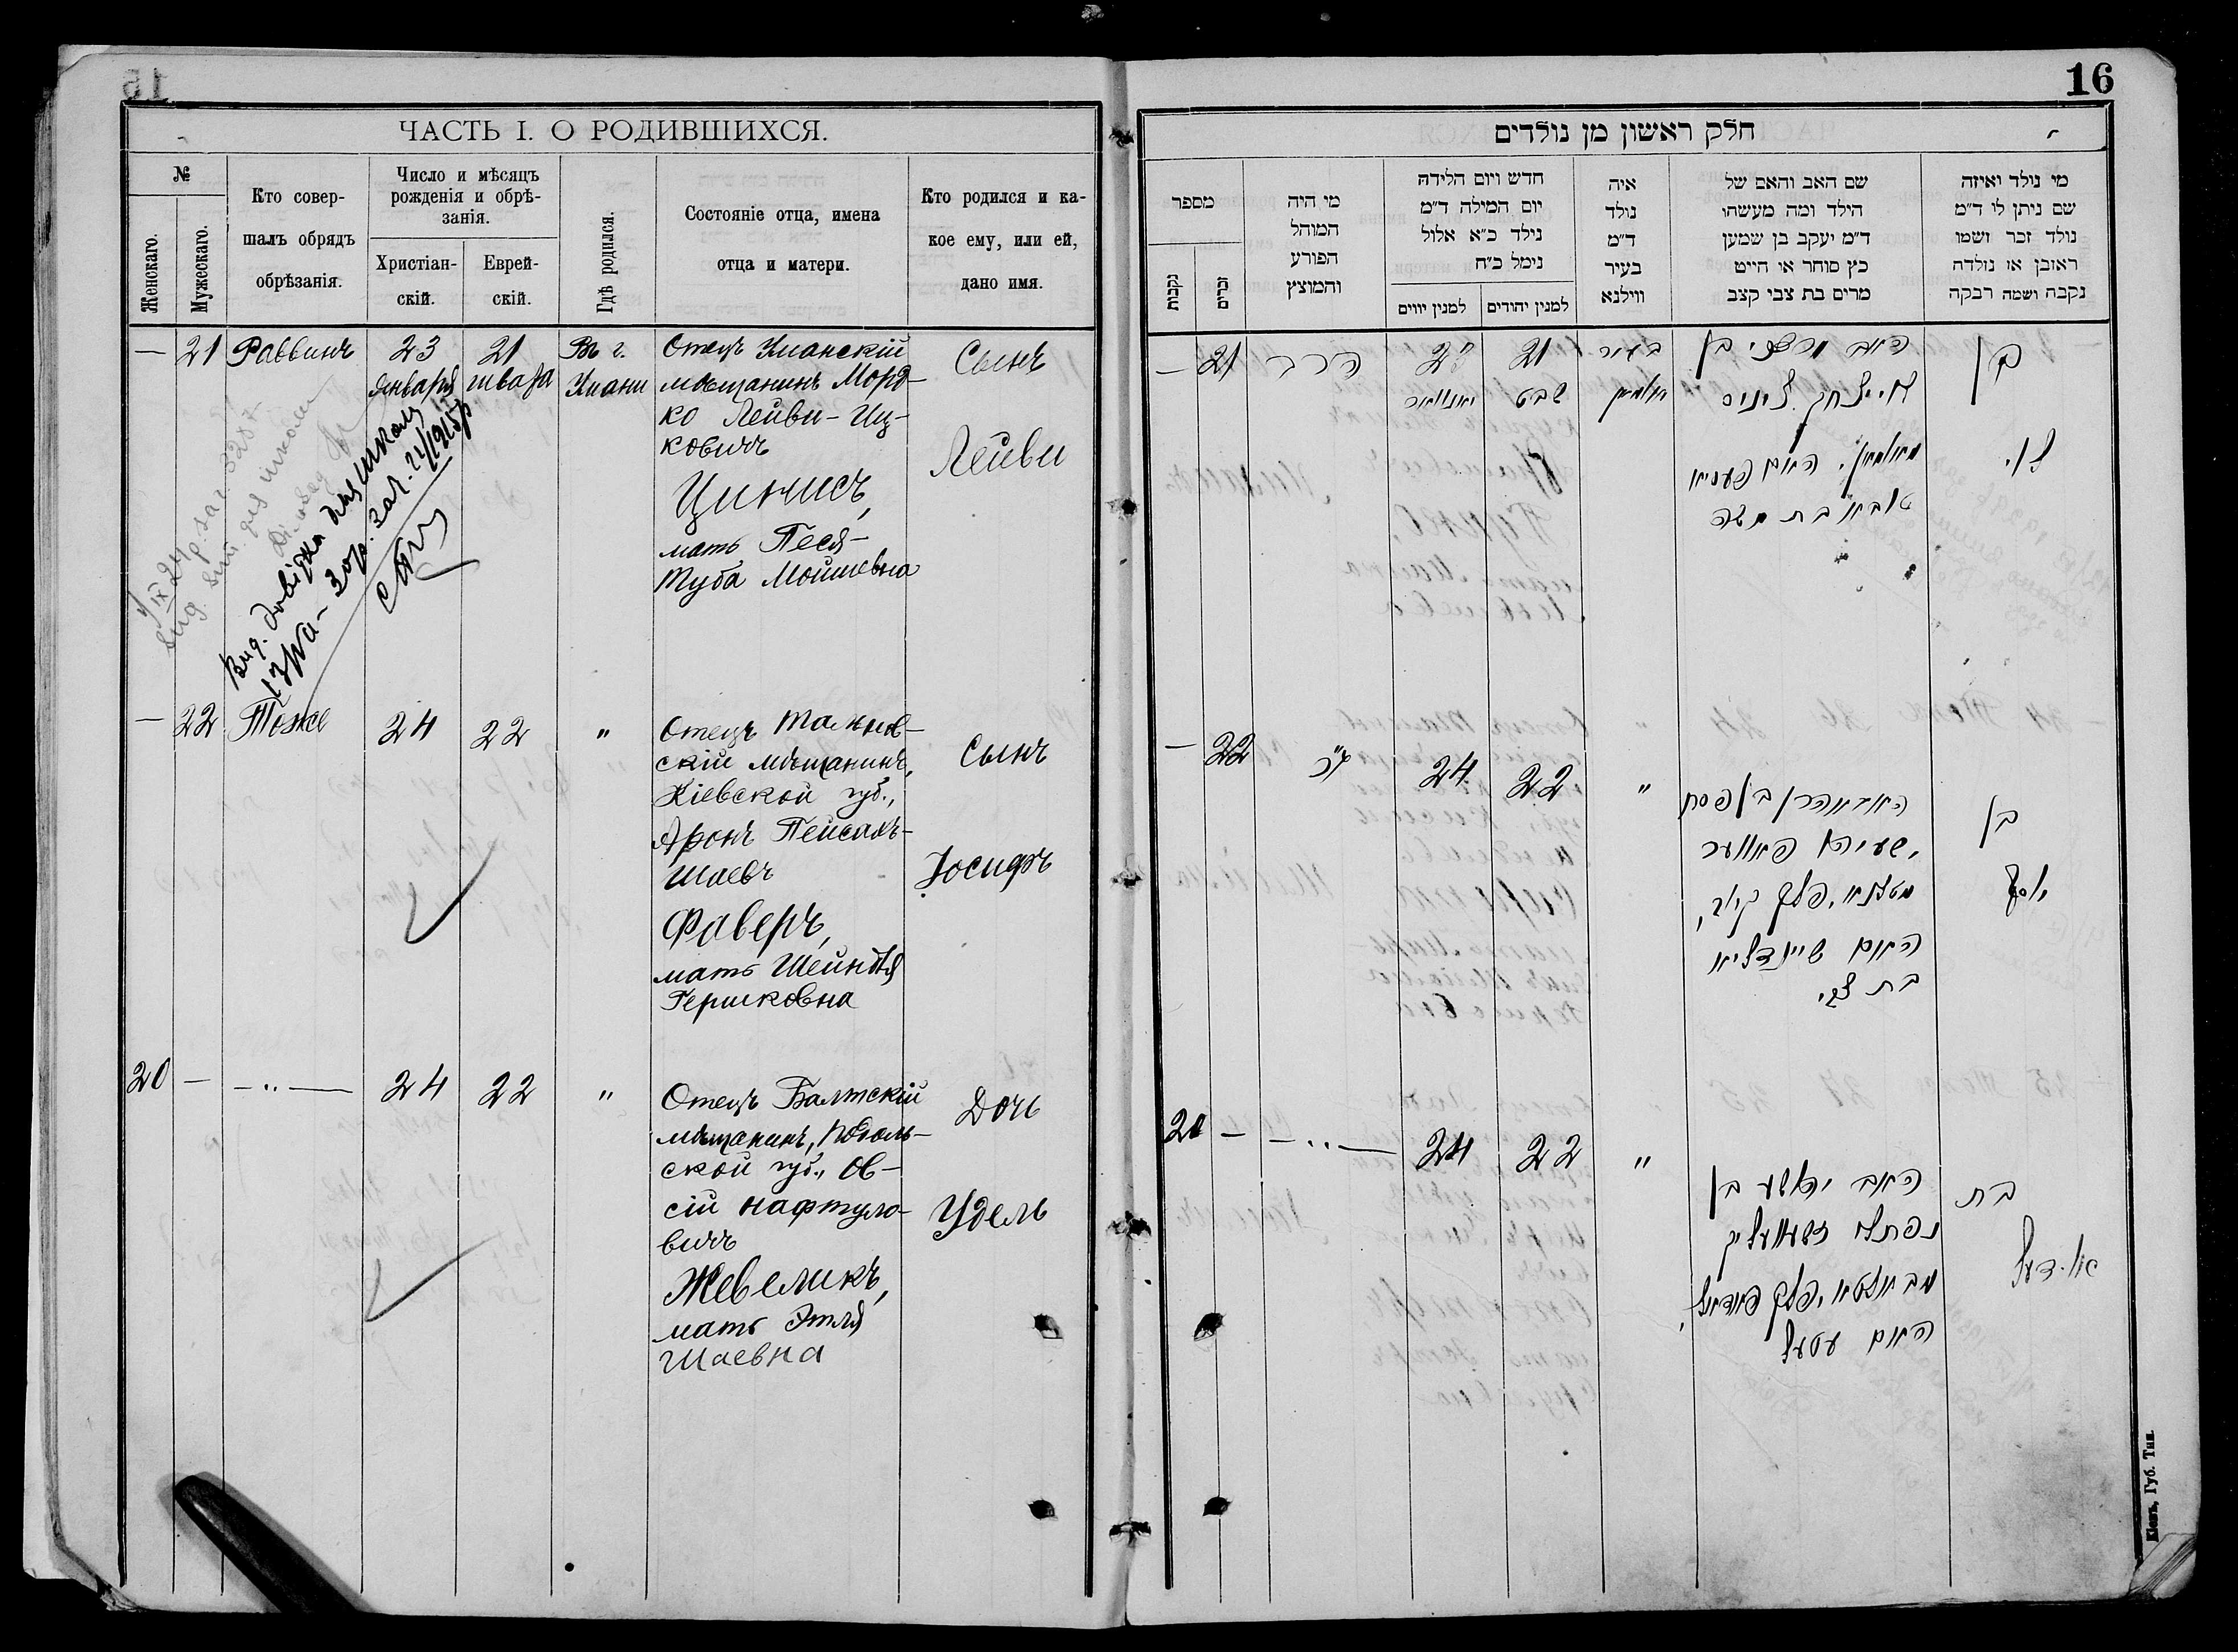 16
ЧАСТЬ I. О РОДИВШИХСЯ.
№
Женскаго.
Мужескаго.
Кто совер-
шалъ обрядъ
обрѣзанія.
Число и мѣсяцъ
рожденія и обрѣ-
занія.
Христіан-
скій.
Еврей-
скій.
Гдѣ родился.
Состояніе отца, имена
отца и матери.
Кто родился и ка-
кое ему, или ей,
дано имя.
— 21 Раввинъ 23 21 Въ г.
Января шваза Умани
Отецъ Уманскій
мѣщанинъ Морд-
ко Лейви-Иц-
ковичъ
Цинисъ,
мать Песя-
Туба Мойшевна
Сынъ
Лейви
Вид. довідка для школы
— 22 Тоже 24 22 "
Отецъ Тальнов-
скій мѣщанинъ,
Кіевской губ.,
Аронъ Пейсахъ-
Шаевъ
Фаверъ,
мать Шейндля
Гершковна
Сынъ
Іосифъ
20 — —"— 24 22 "
Отецъ Балтскій
мѣщанинъ, Подоль-
ской губ., Ов-
сій Нафтуло-
вичъ
Жевеликъ,
мать Этля
Шаевна
Дочь
Удель
חלק ראשון מן נולדים
מי נולד ואיזה
שם ניתן לו ד"מ
נולד זכר ושמו
ראובן או נולדה
נקבה ושמה רבקה
שם האב והאם של
הילד ומה מעשהו
ד"מ יעקב בן שמעון
כץ סוחר או חייט
מרים בת צבי קצב
איה
נולד
ד"מ
בעיר
ווילנא
חדש ויום הלידה
יום המילה ד"מ
נילד כ"א אלול
נימל כ"ח
למנין יהודים
למנין יווים
מי היה
המוהל
הפורע
והמוצץ
מספר
זכרים
נקבות
בן
לוי
האב מרדכי בן
לוי יצחק ציניס
מאומאן, האם פעסיא
טובא בת משה
בעיר
אומאן
21
שבט
23
יאנואר
הרב
21 —
בן
יוסף
האב אהרן בן פסח
ישעיהו פאווער
מטאלנא, פלך קיוב,
האם שיינדליא
בת צבי
"
22
24
22 —
בת
אודעל
האב יהושע בן
נפתלי זשעוועליק
מבאלטא, פלך פאדאל,
האם עטעל
"
22
24
—"—
— 20
Кіевъ, Губ. Тип.